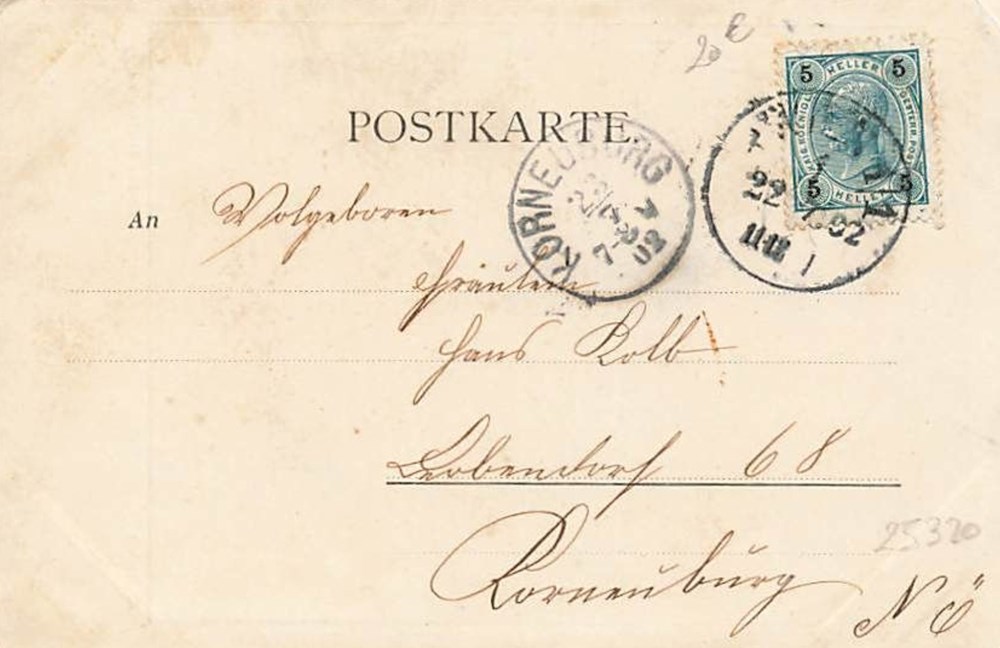 20 €
5 HELLER 5
KAIS. KOENIGL. OESTERR. POST
5 HELLER 5
POSTKARTE.
KORNEUBURG
7-8
02
22 02
11-12
1
An Wolgeboren
Fräulein
Kolb
Leobendorf 68
25320
Korneuburg
N Ö